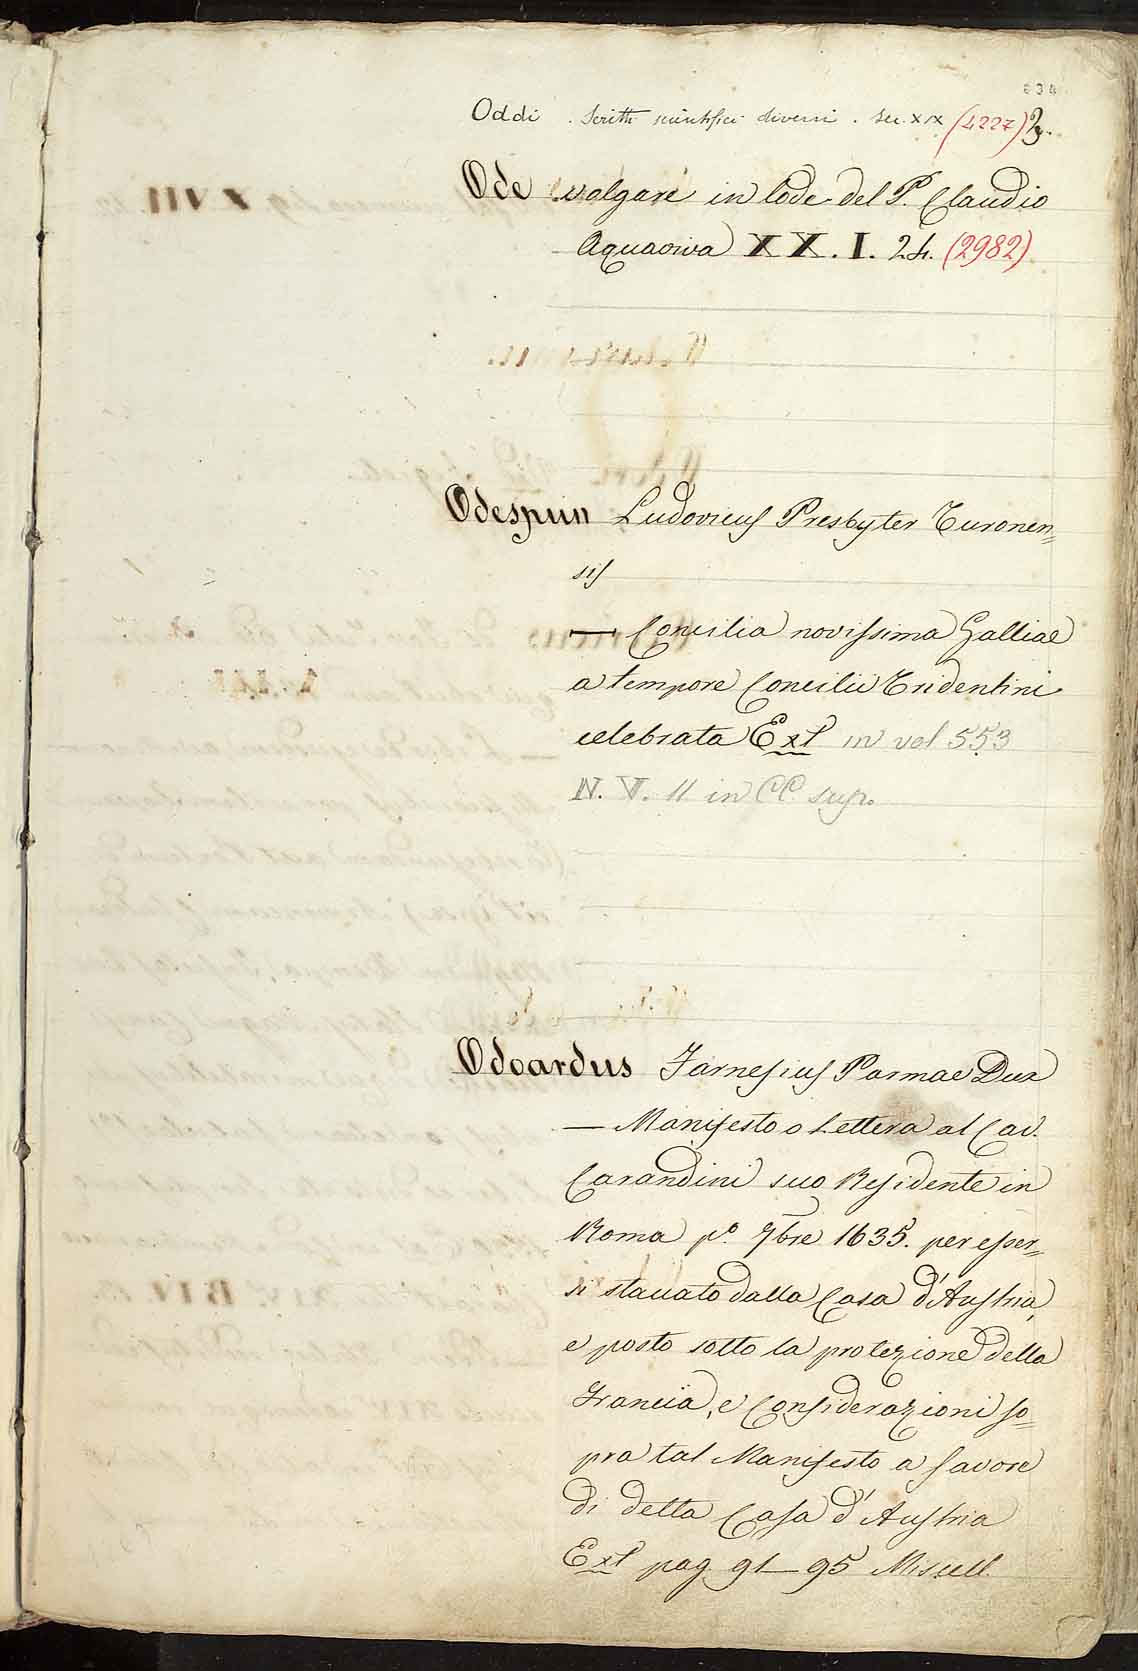 634
Oddi . Scritti scientifici diversi . sec. XIX (4227)
Ode volgare in lode del P. Claudio
Aquaviva XX. I. 24. (2982)
Odespun Ludovicus Presbyter Turonen=
sis
— Concilia novissima Galliae
a tempore Concilii Tridentini
celebrata Ext in vol 553
N. V. 11 in CC. sup.
Odoardus Farnesius Parmae Dux
— Manifesto o Lettera al Cav.
Carandini suo Residente in
Roma po. 7bre 1635. per esser=
si staccato dalla Casa d'Austria,
e posto sotto la protezione della
Francia, e Considerazioni so=
pra tal Manifesto a favore
di detta Casa d'Austria
Ext pag 91—95 Miscell.